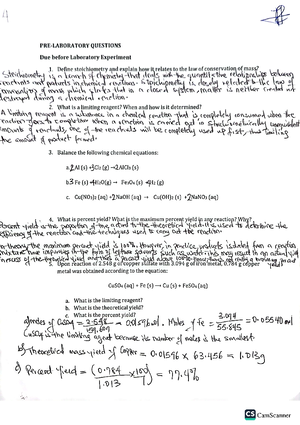 PRE-LABORATORY QUESTIONS
Due before Laboratory Experiment
1. Define stoichiometry and explain how it relates to the law of conservation of mass?
Stoichiometry is a branch of chemistry that deals with the quantitative relationships between
reactants and products in chemical reactions. Stoichiometry is closely related to the law of
conservation of mass which states that in a closed system, matter is neither created nor
destroyed during a chemical reaction.
2. What is a limiting reagent? When and how is it determined?
A limiting reagent is a substance in a chemical reaction that is completely consumed when the
reaction goes to completion when a reaction is carried out in stoichiometrically equivalent
amounts of reactants, one of the reactants will be completely used up first, thus limiting
the amount of product formed.
3. Balance the following chemical equations:
a. 2 Al (s) + 3 Cl₂ (g) → 2 AlCl₃ (s)
b. 3 Fe (s) + 4 H₂O (g) → Fe₃O₄ (s) + 4 H₂ (g)
c. Cu(NO₃)₂ (aq) + 2 NaOH (aq) → Cu(OH)₂ (s) + 2 NaNO₃ (aq)
4. What is percent yield? What is the maximum percent yield in any reaction? Why?
Percent yield is the proportion of the actual to the theoretical yield. It is used to determine the
efficiency of the reaction and the techniques used to carry out the reaction
In theory the maximum percent yield is 100%. However, in practice, products isolated from a reaction
5. Upon reaction of 2.548 g of copper sulfate with 3.094 g of iron metal, 0.784 g of copper
metal was obtained according to the equation:
CuSO₄ (aq) + Fe (s) → Cu (s) + FeSO₄ (aq)
a. What is the limiting reagent?
b. What is the theoretical yield?
c. What is the percent yield?
a) moles of CuSO₄ = 2.548 / 159.609 = 0.01596 mol. Moles of Fe = 3.094 / 55.845 = 0.05540 mol
CuSO₄ is the limiting agent because its number of moles is the smallest
b) Theoretical mass yield of Copper = 0.01596 × 63.456 = 1.013 g
c) Percent Yield = (0.784 / 1.013 × 100) = 77.4%
CS CamScanner